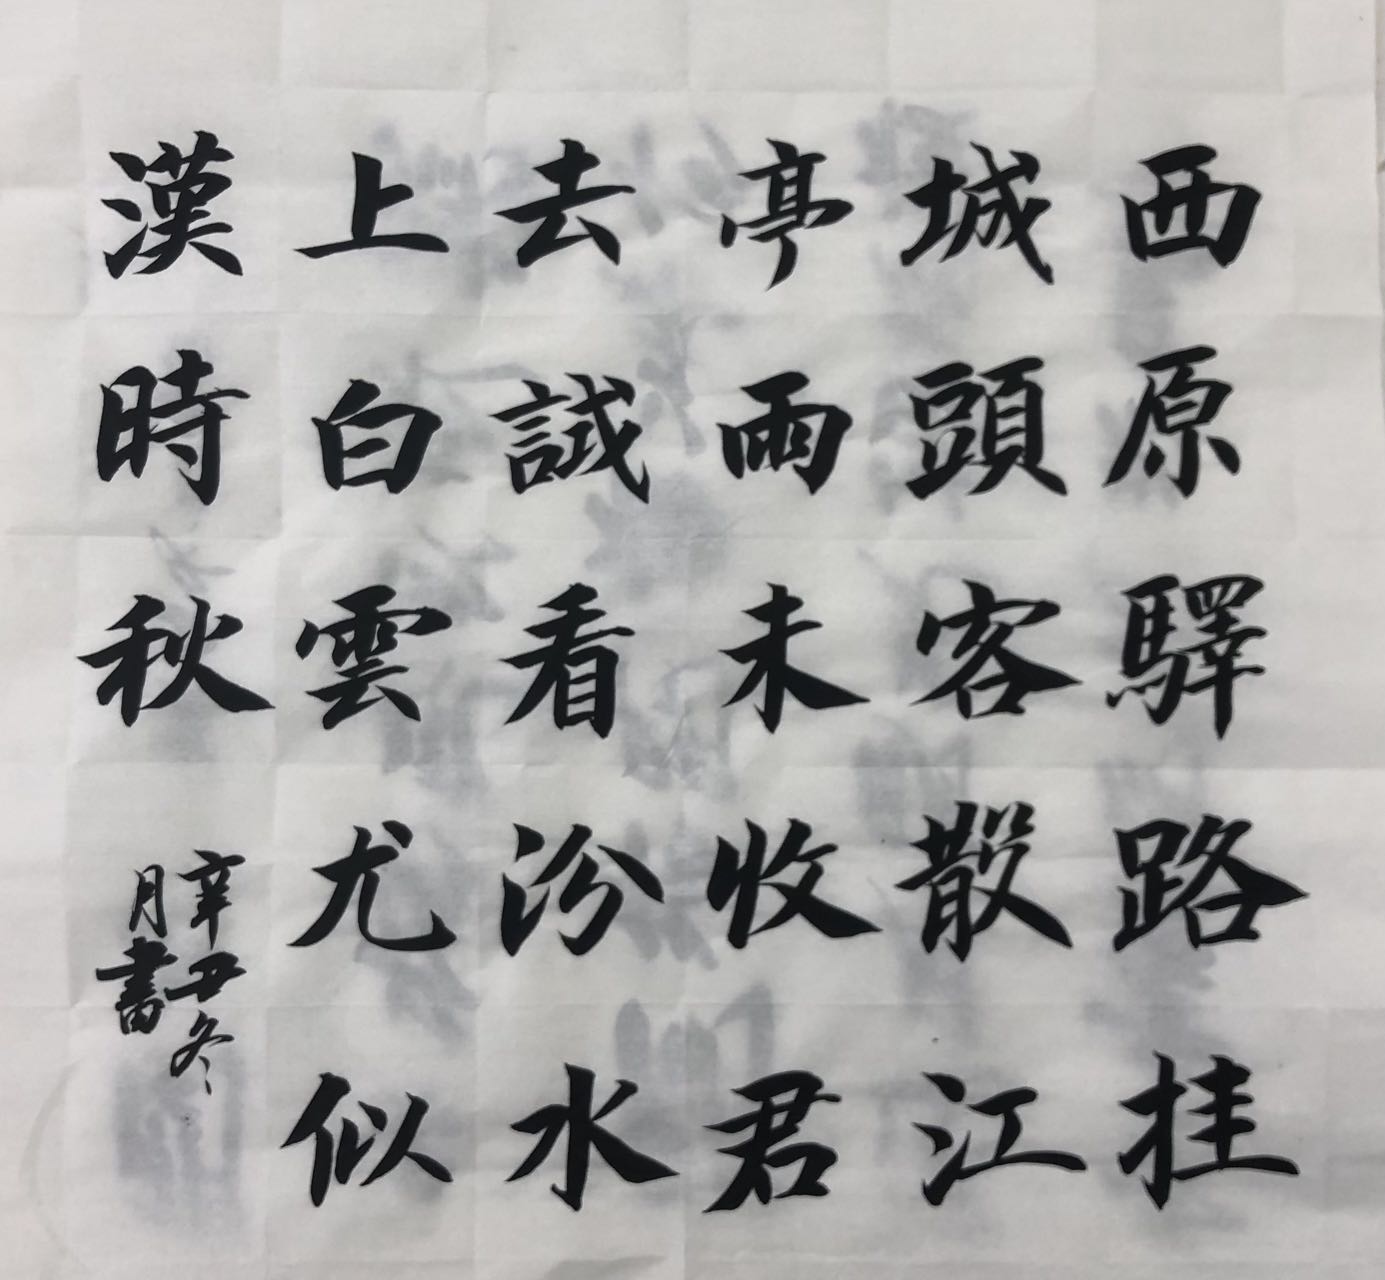 西原驛路挂
城頭客散江
亭雨未收君
去試看汾水
上白雲尤似
漢時秋
辛丑冬
月書